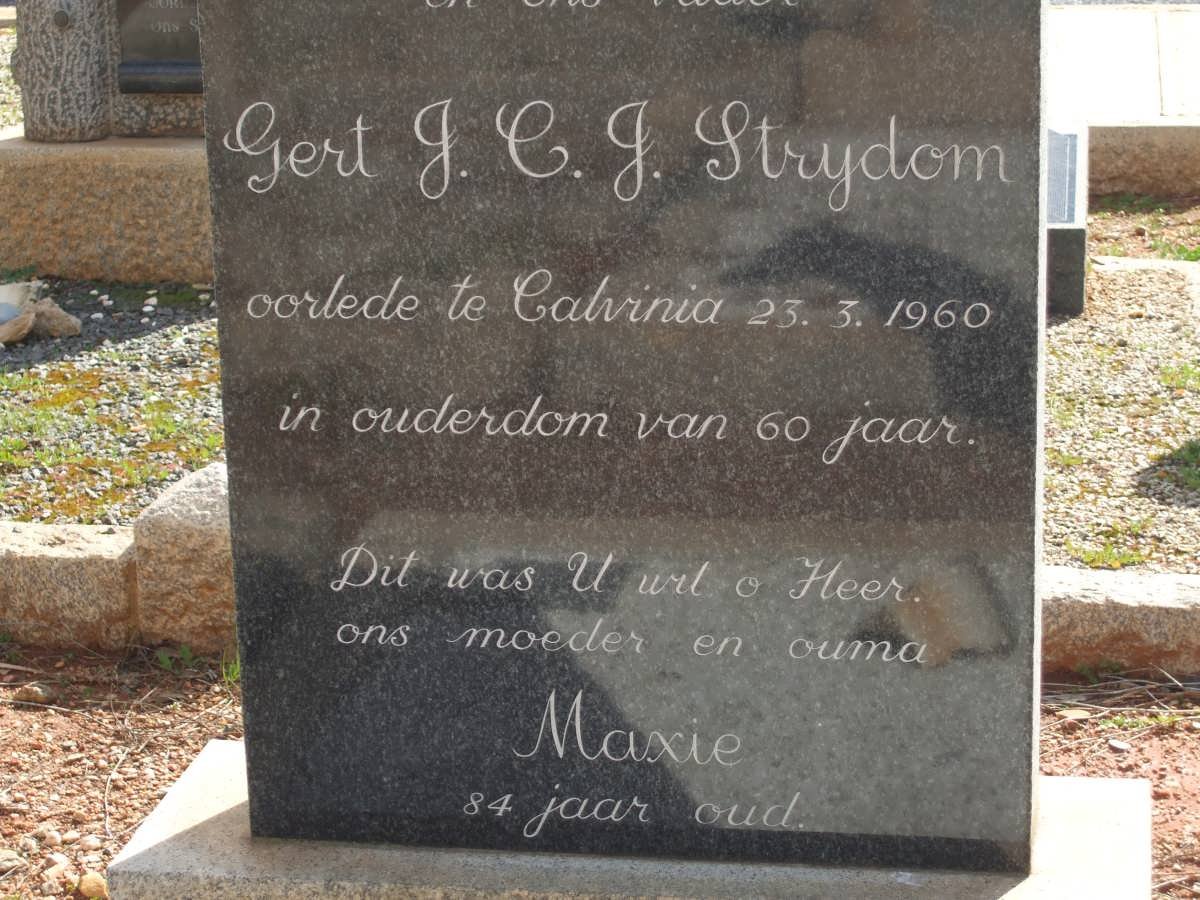 en ons vader
Gert J. C. J. Strydom
oorlede te Calvinia 23. 3. 1960
in ouderdom van 60 jaar.
Dit was U wil o Heer.
ons moeder en ouma
Maxie
84 jaar oud.